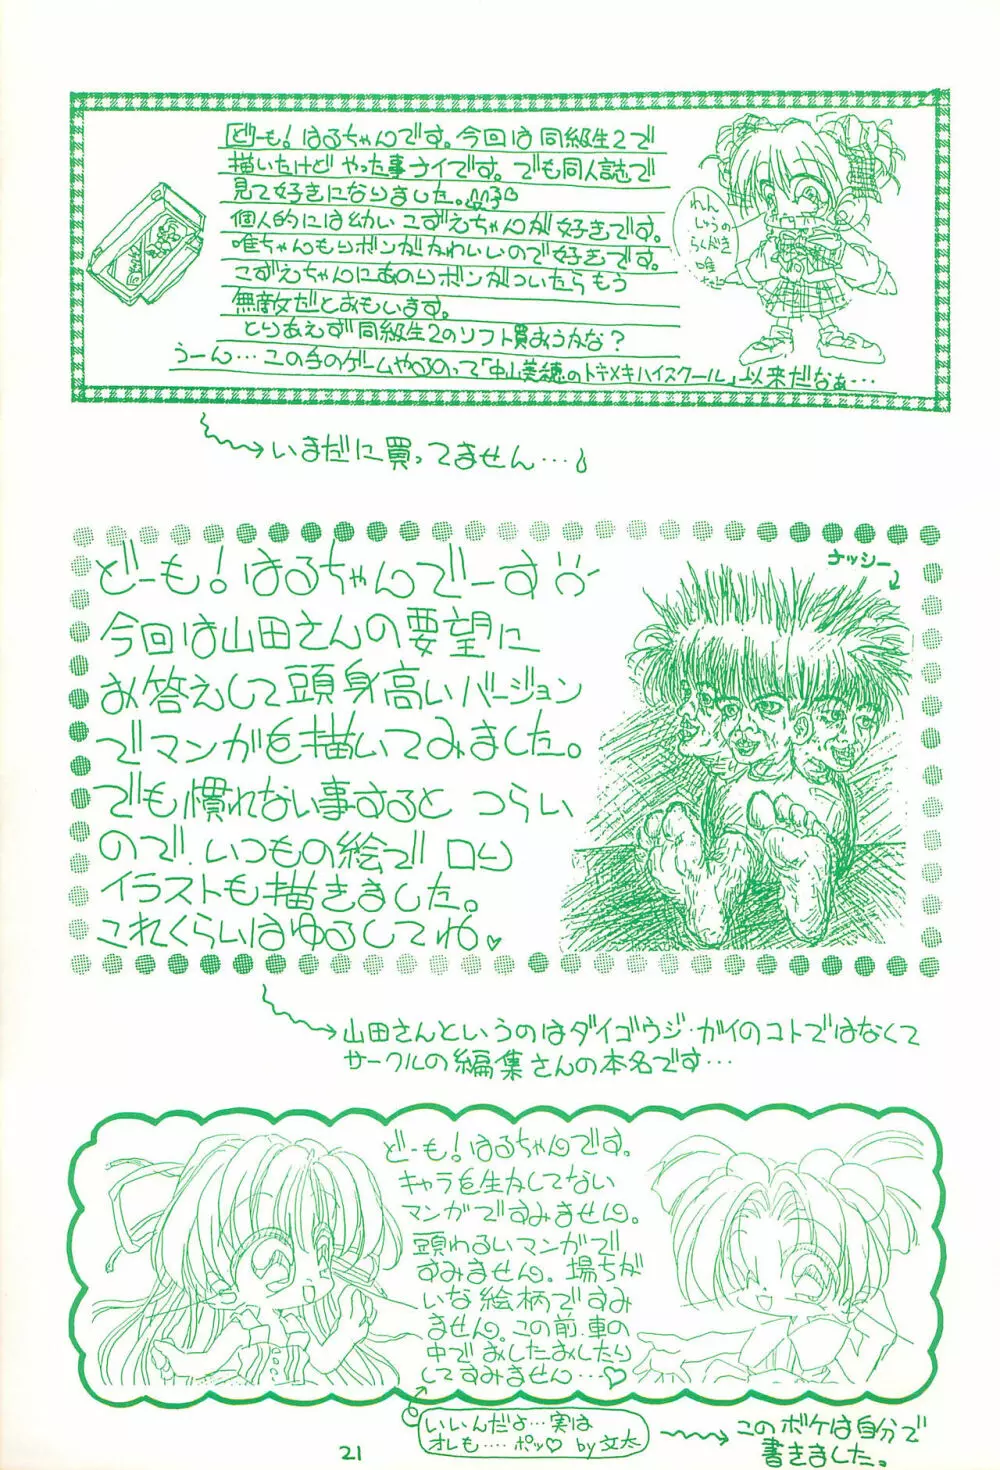 どーも!はるちゃんです。今回は同級生2で
描いたけどやった事ナイです。でも同人誌で
見て好きになりました。
個人的には幼いこずえちゃんが好きです。
唯ちゃんもリボンがかわいいので好きです。
こずえちゃんにあのリボンがついたらもう
無敵だとおもいます。
とりあえず同級生2のソフト買おうかな?
うーん…この手のゲームやるのって「中山美穂のトキメキハイスクール」以来だなぁ…
れん
しゅうの
らくがき
唯
いまだに買ってません…
どーも!はるちゃんでーす
今回は山田さんの要望に
お答えして頭身高いバージョン
でマンガを描いてみました。
でも慣れない事すると つらい
ので、いつもの絵で ロリ
イラストも描きました。
これくらいはゆるしてね♥
ナッシー
山田さんというのはダイゴウジ・ガイのコトではなくて
サークルの編集さんの本名です…
どーも!はるちゃんです。
キャラを生かしてない
マンガですみません。
頭わるいマンガで
すみません。場ちが
いな絵柄ですみ
ません。この前、車の
中でおしたおしたり
してすみません…♡
いいんだよ…実は
オレも‥‥ポッ♡ by 文太
このボケは自分で
書きました。
21